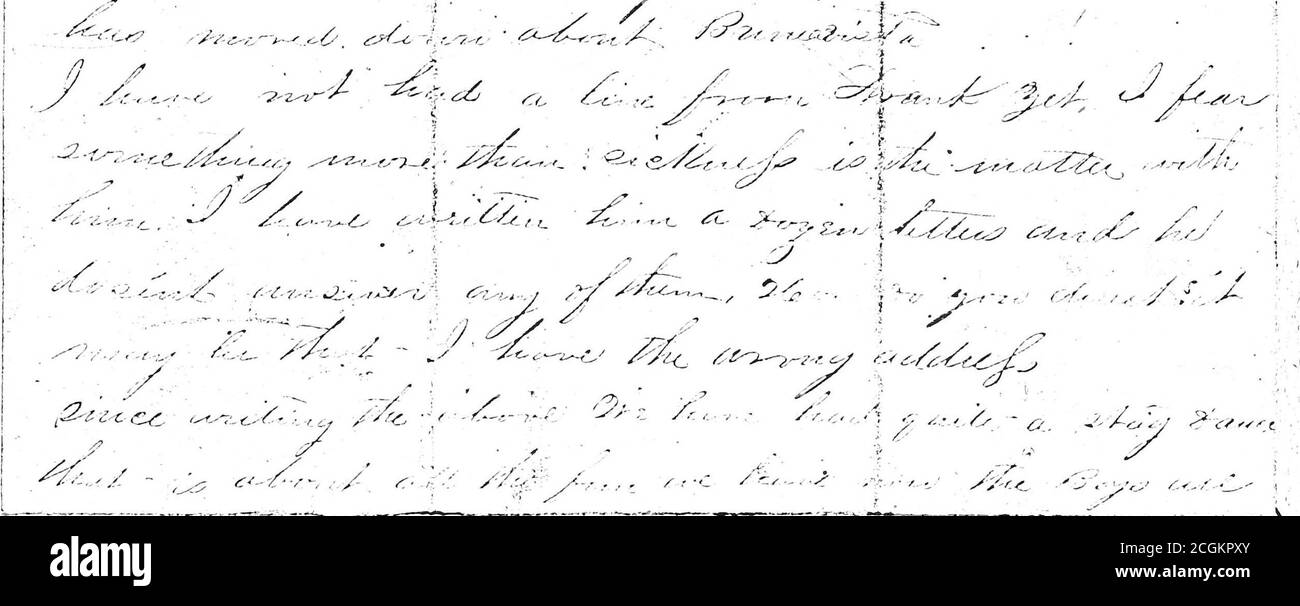 has moved down about
I have not had a line from Frank yet, I fear
something more than sickness is the matter with
him. I have written him a dozen letters and he
dosent answer any of them, direct it
may be that - I have the wrong address
since writing the above We have had quite a stag dance
that - is about all the fun we have now the Boys are
alamy
Image ID: 2CGKPXY
www.alamy.com